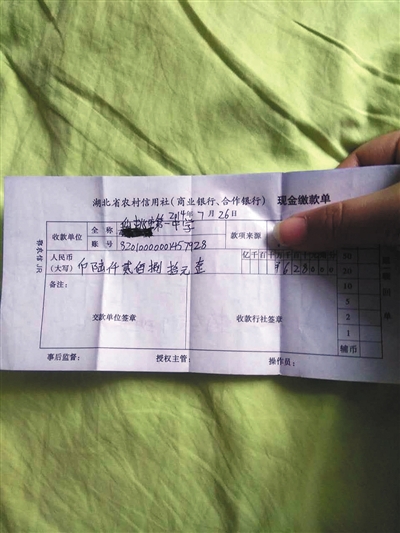 湖北省农村信用社(商业银行、合作银行) 现金缴款单
2014年7月26日
收款单位 全称 第一中学 款项来源
账号 82010000000457928
人民币(大写) 陆仟贰佰捌拾元整 亿千百十万千百十元角分 ¥628000
备注:
交款单位签章 收款行社签章
50
20
10
5
2
1
辅币
事后监督: 授权主管: 操作员: